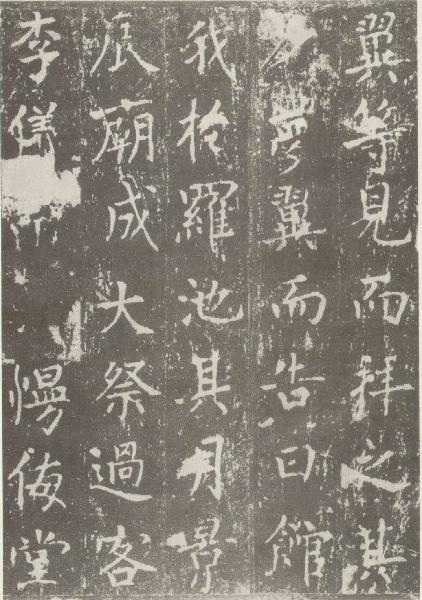 翼等見而拜之其
夕夢翼而告曰館
我於羅池其月景
辰廟成大祭過客
李儀慢侮堂